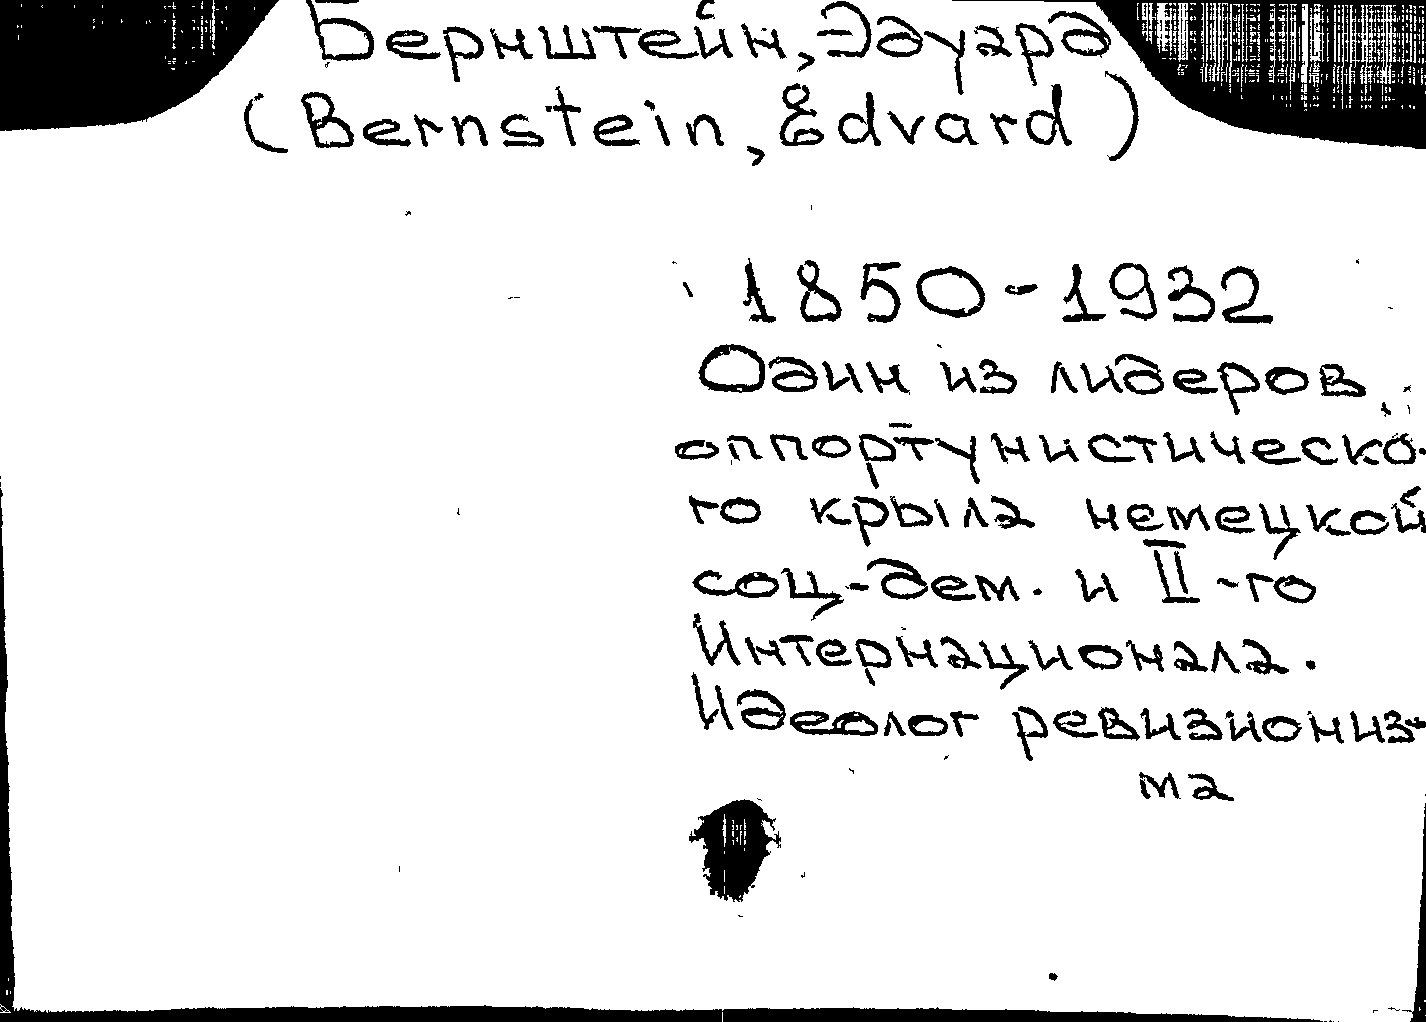 Бернштейн, Эдуард
(Bernstein, Edvard)
1850-1932
Один из лидеров
оппортунистическо-
го крыла немецкой
соц-дем. и II-го
Интернационала.
Идеолог ревизиониз-
ма